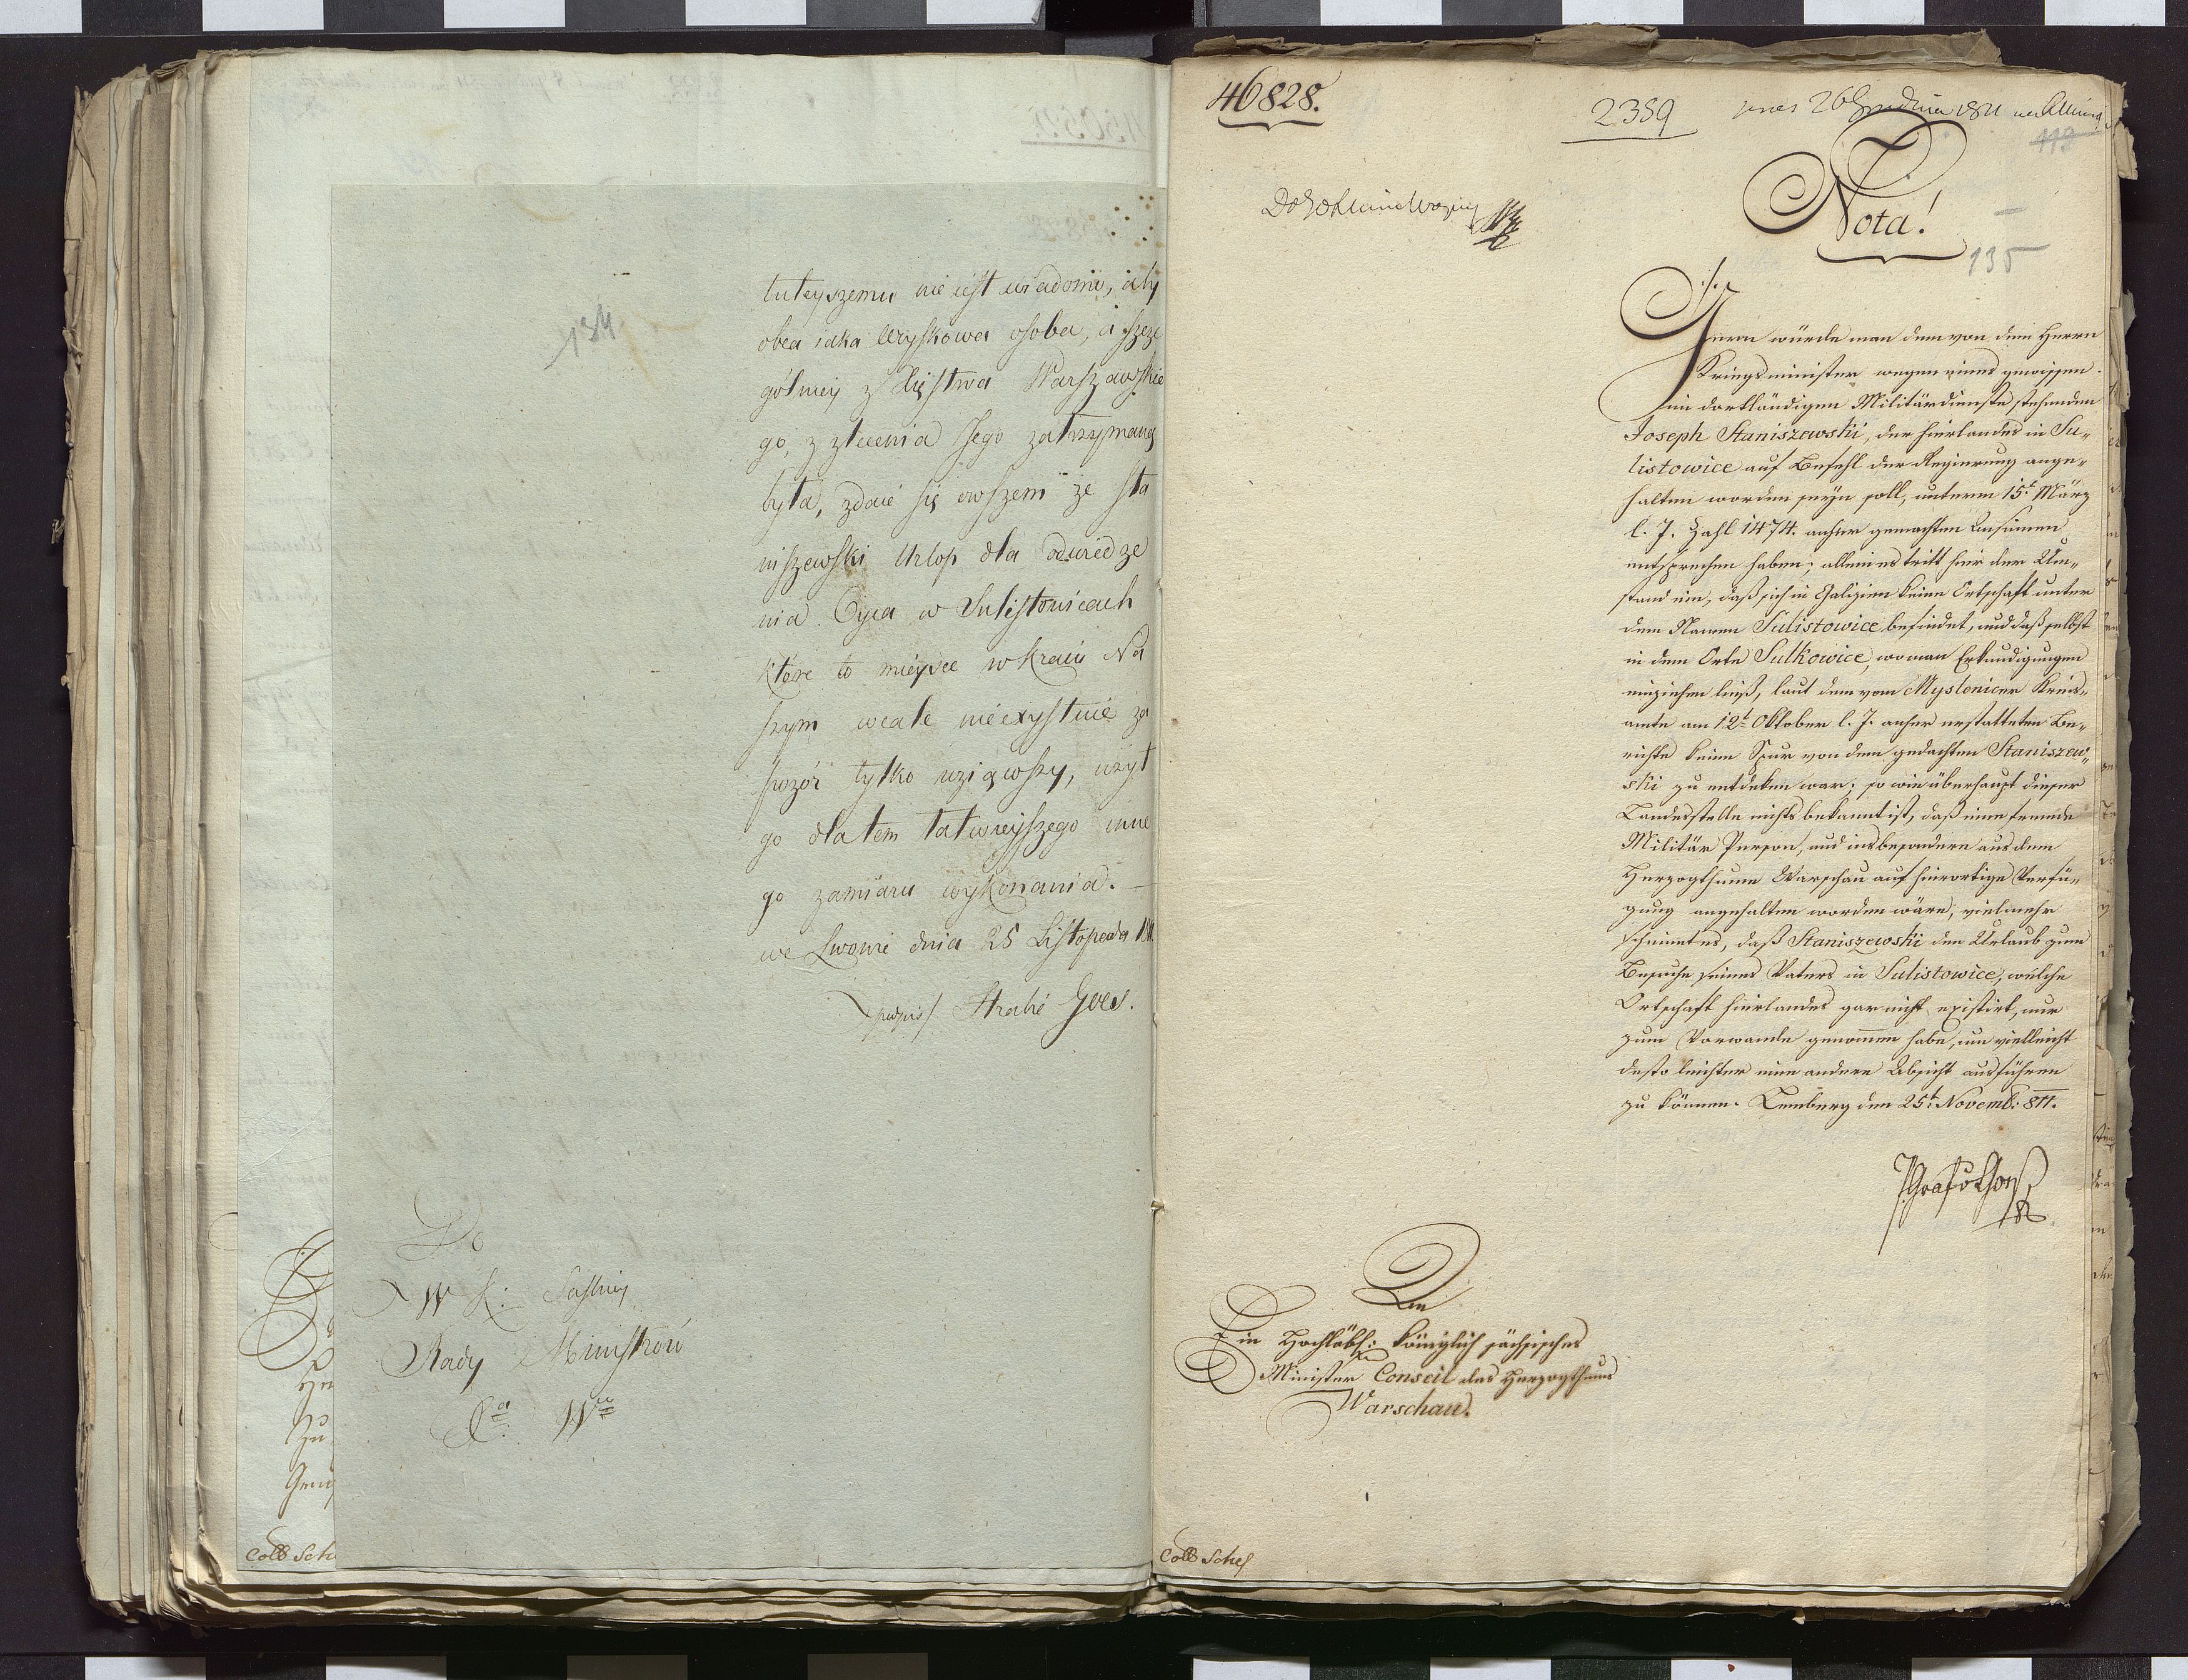 134
tuteyszemu nie iest wiadomo, aby
obca iaka woyskowa osoba, a szcze
gólniey z Xięstwa Warszawskie
go, z zlecenia Jego zatrzymaną
była, zdaie się owszem że Sta
niszewski Urlop dla odwiedze
nia Oyca w Sulistowicach
które to mieysce w Kraiu Na
szym wcale nieexystuie za
pozór tylko wziąwszy, użył
go dla tem łatwieyszego inne
go zamiaru wykonania. —
we Lwowie dnia 25 Listopada 1811.
/podpis/ Hrabia Goes.
Do
W K: Saskiey
Rady Ministrów
Xa Wo
Coll Sch
46828.
2359
26 Grudnia 1811
113
Nota!
135
Gern würde man dem von dem Herrn
Kriegsminister wegen eines gewissen
im dortländigen Militärdienste stehenden
Joseph Staniszewski, der hierlandes in Su„
listowice auf Befehl der Regierung ange„
halten worden seyn soll, unterm 15t. März
l. J. Zahl 1474. anher gemachten Ansinnen
entsprochen haben; allein es tritt hier der Um„
stand ein, daß sich in Galizien keine Ortschaft unter
dem Namen Sulistowice befindet, und daß selbst
in dem Orte Sulkowice, wo man Erkundigungen
einziehen ließ, laut dem vom Myslenicer Kreis„
amte am 12t. Oktober l. J. anher erstatteten Be„
richte keine Spur von dem gedachten Staniszew„
ski zu entdeken war; so wie überhaupt dieser
Landesstelle nichts bekannt ist, daß eine fremde
Militär Person, und insbesondere aus dem
Herzogthume Warschau auf hierortige Verfü„
gung angehalten worden wäre, vielmehr
scheint es, daß Staniszewski den Urlaub zum
Besuche seines Vaters in Sulistowice, welche
Ortschaft hierlandes gar nicht existirt, nur
zum Vorwande genommen habe, um vielleicht
desto leichter eine andere Absicht ausführen
zu können. Lemberg den 25t. Novemb: 811.
An
Ein Hochlöbl: königlich sächsisches
Minister Conseil des Herzogthums
Warschau.
Coll Schef